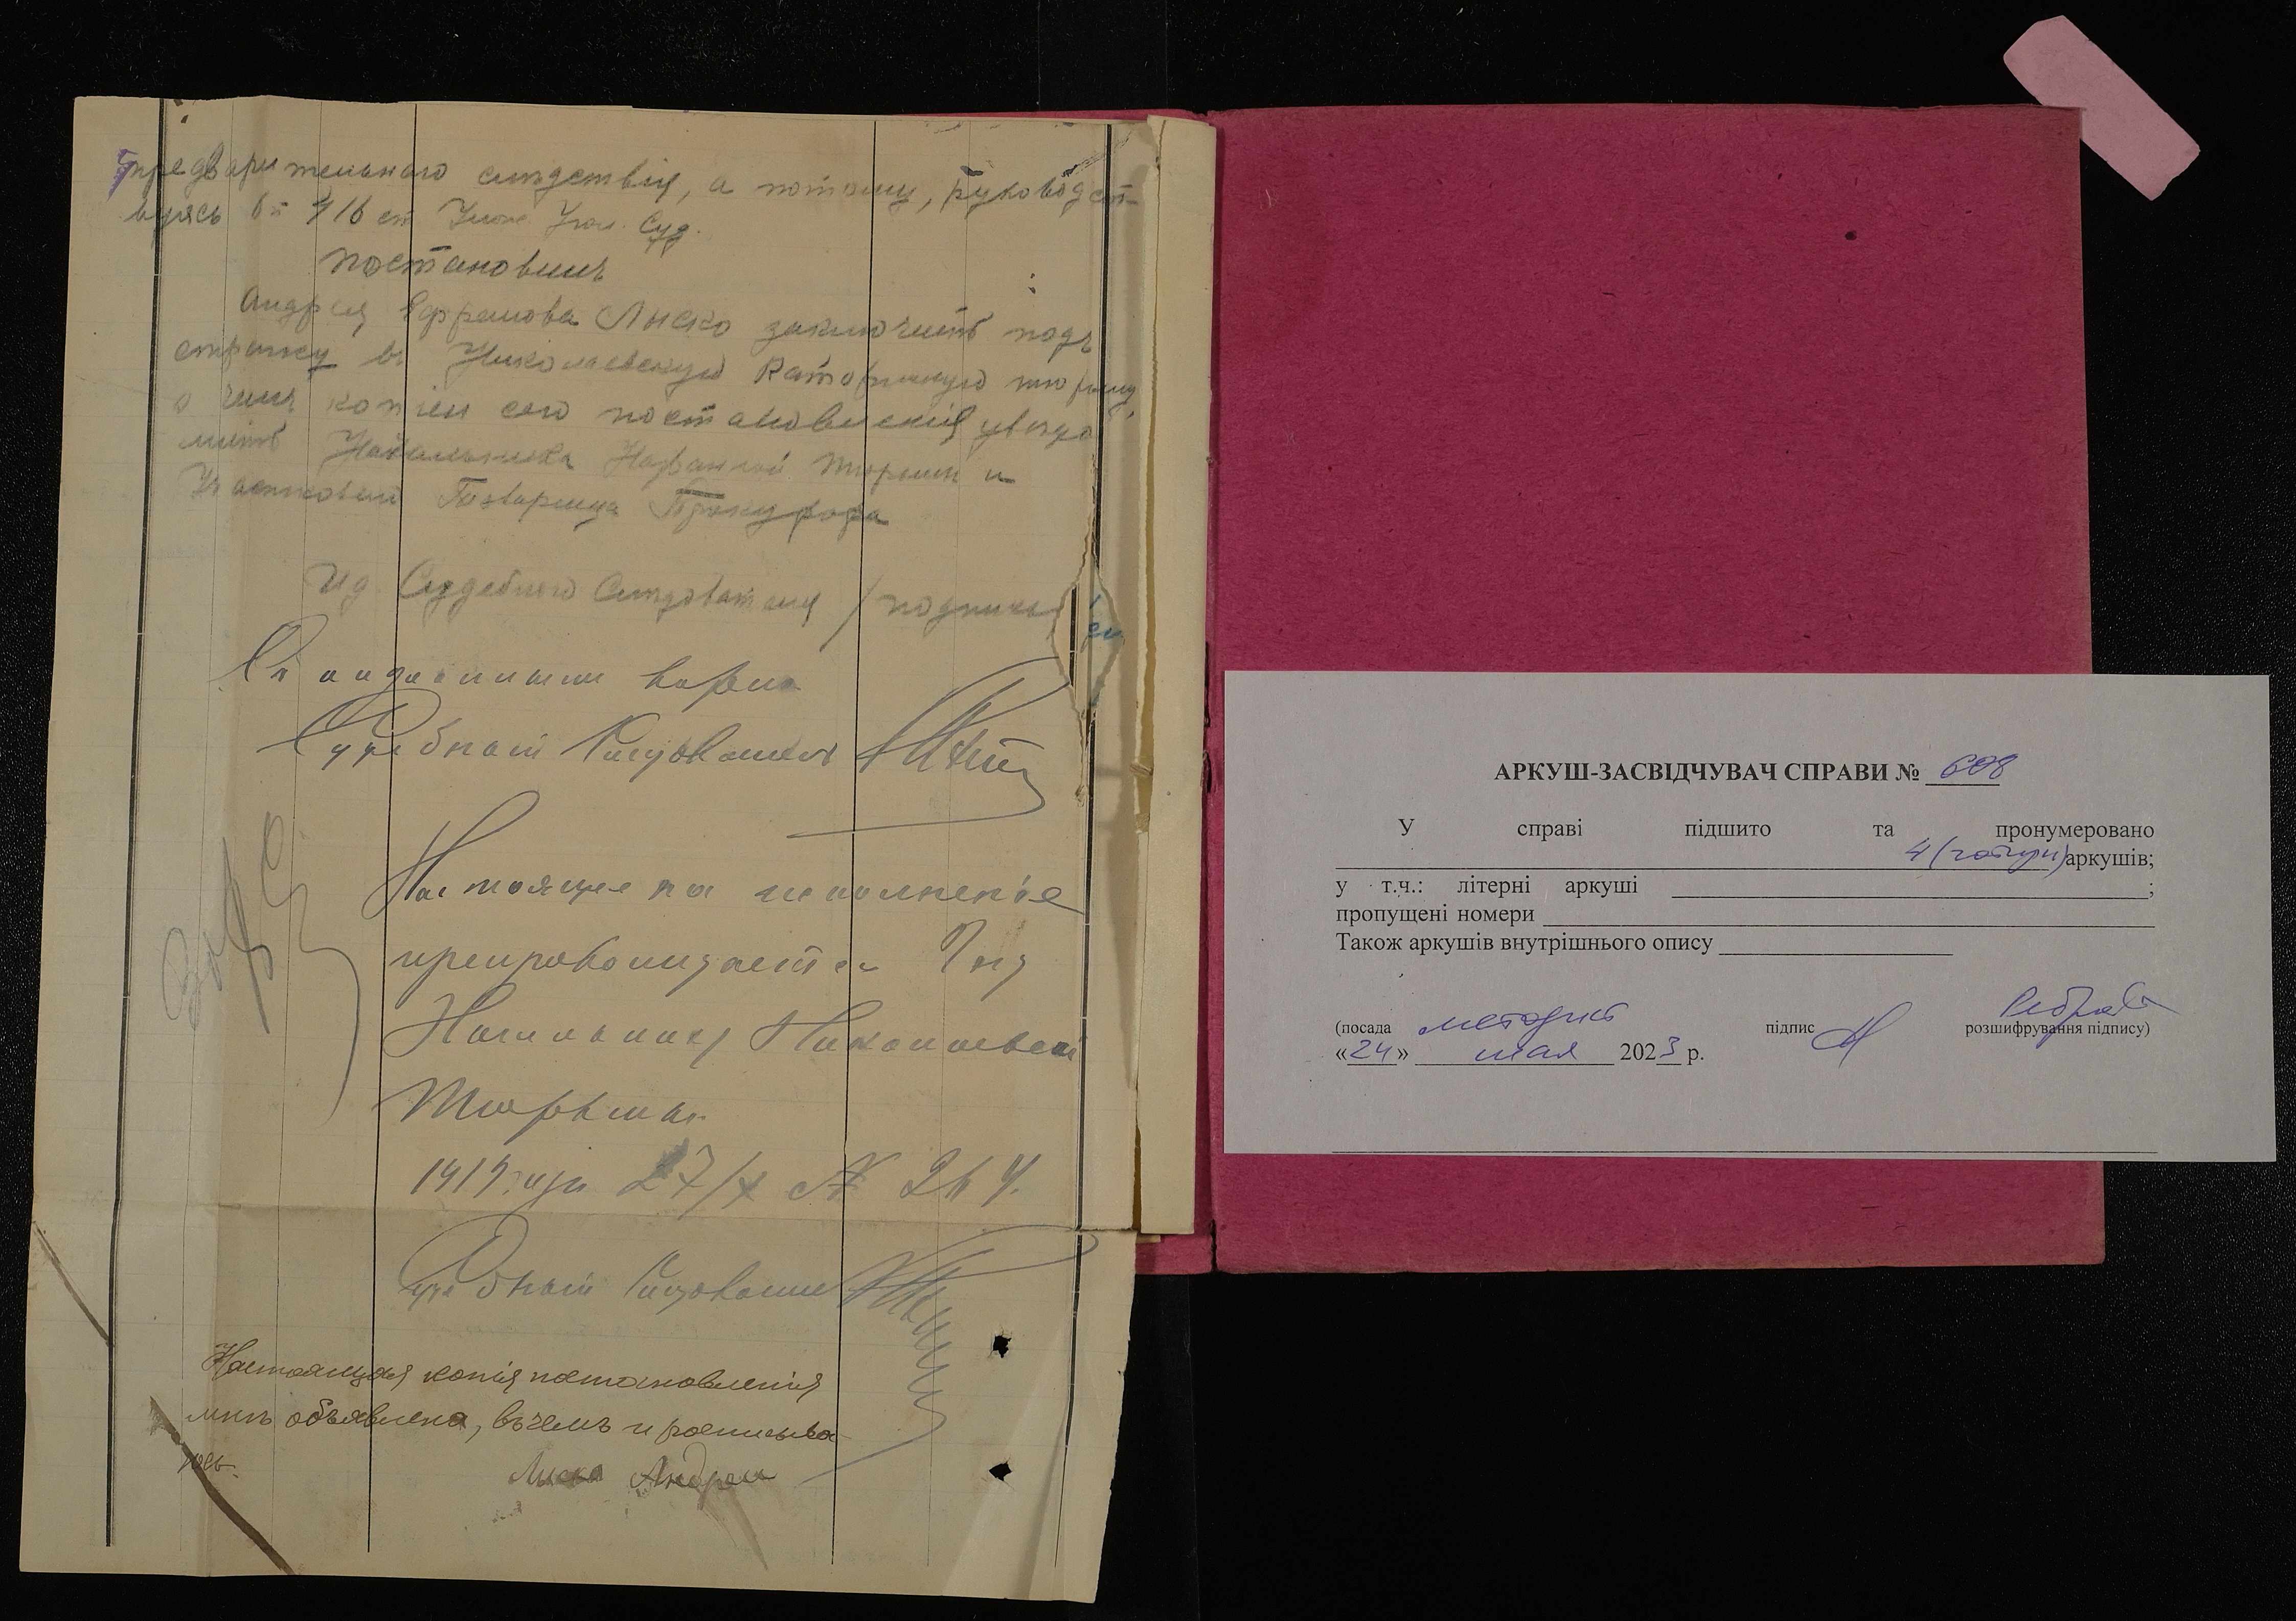 предварительнаго следствія, а потому, руководст-
вуясь 416 ст Улож. Угол. Суд.
постановилъ
Андрея Ефремова Лыско заключить подъ
стражу въ Николаевскую Каторжную тюрьму,
о чемъ копіей сего постановленія уведо
мить Начальника Названной тюрьмы и
Участковаго Товарища Прокурора
И.д. Судебнаго Следователя / подпись
Съ подлиннымъ верно
Судебный Следователь
Настоящее на исполненіе
препровождается Гну
Начальнику Николаевской
Тюрьмы
1919 года 27/X № 264.
Судебный Следователь
Настоящая копія постановленія
мнъ объявлена, въ чемъ и росписыва
юсь.
Лыска Андрей
АРКУШ-ЗАСВІДЧУВАЧ СПРАВИ № 608
У справі підшито та пронумеровано
4 (чотири) аркушів;
у т.ч.: літерні аркуші ;
пропущені номери
Також аркушів внутрішнього опису
(посада методист підпис розшифрування підпису)
«24» мая 2023 р.